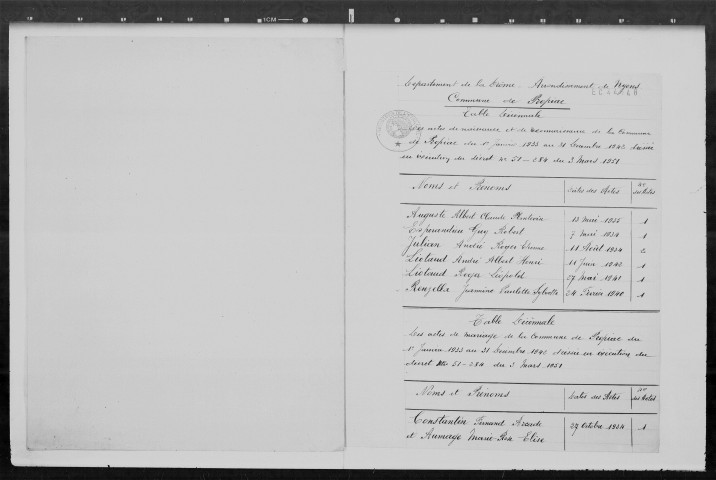 Département de la Drôme. Arrondissement de Nyons
Commune de Propiac
Table Décennale
Des actes de naissance et de reconnaissance de la Commune
de Propiac du 1er Janvier 1933 au 31 Décembre 1942 dressée
en exécution du décret no 51-284 du 3 Mars 1951
Noms et Prénoms Dates des Actes Nos des Actes
Auguste Albert Claude 13 Mai 1935 1
Guy Robert 7 Mai 1934 1
Julian André Roger 11 Août 1934 2
Liotaud André Albert Henri 11 Juin 1942 1
Liotaud Roger Léopold 27 Mai 1941 1
Jeannine Paulette 24 Février 1940 1
Table Décennale
Des actes de mariage de la Commune de Propiac du
1er Janvier 1933 au 31 Décembre 1942 dressée en exécution du
décret No 51-284 du 3 Mars 1951
Noms et Prénoms Dates des Actes Nos des Actes
Constantin Fernand 27 Octobre 1934 1
et Aumage Marie Rose Elise